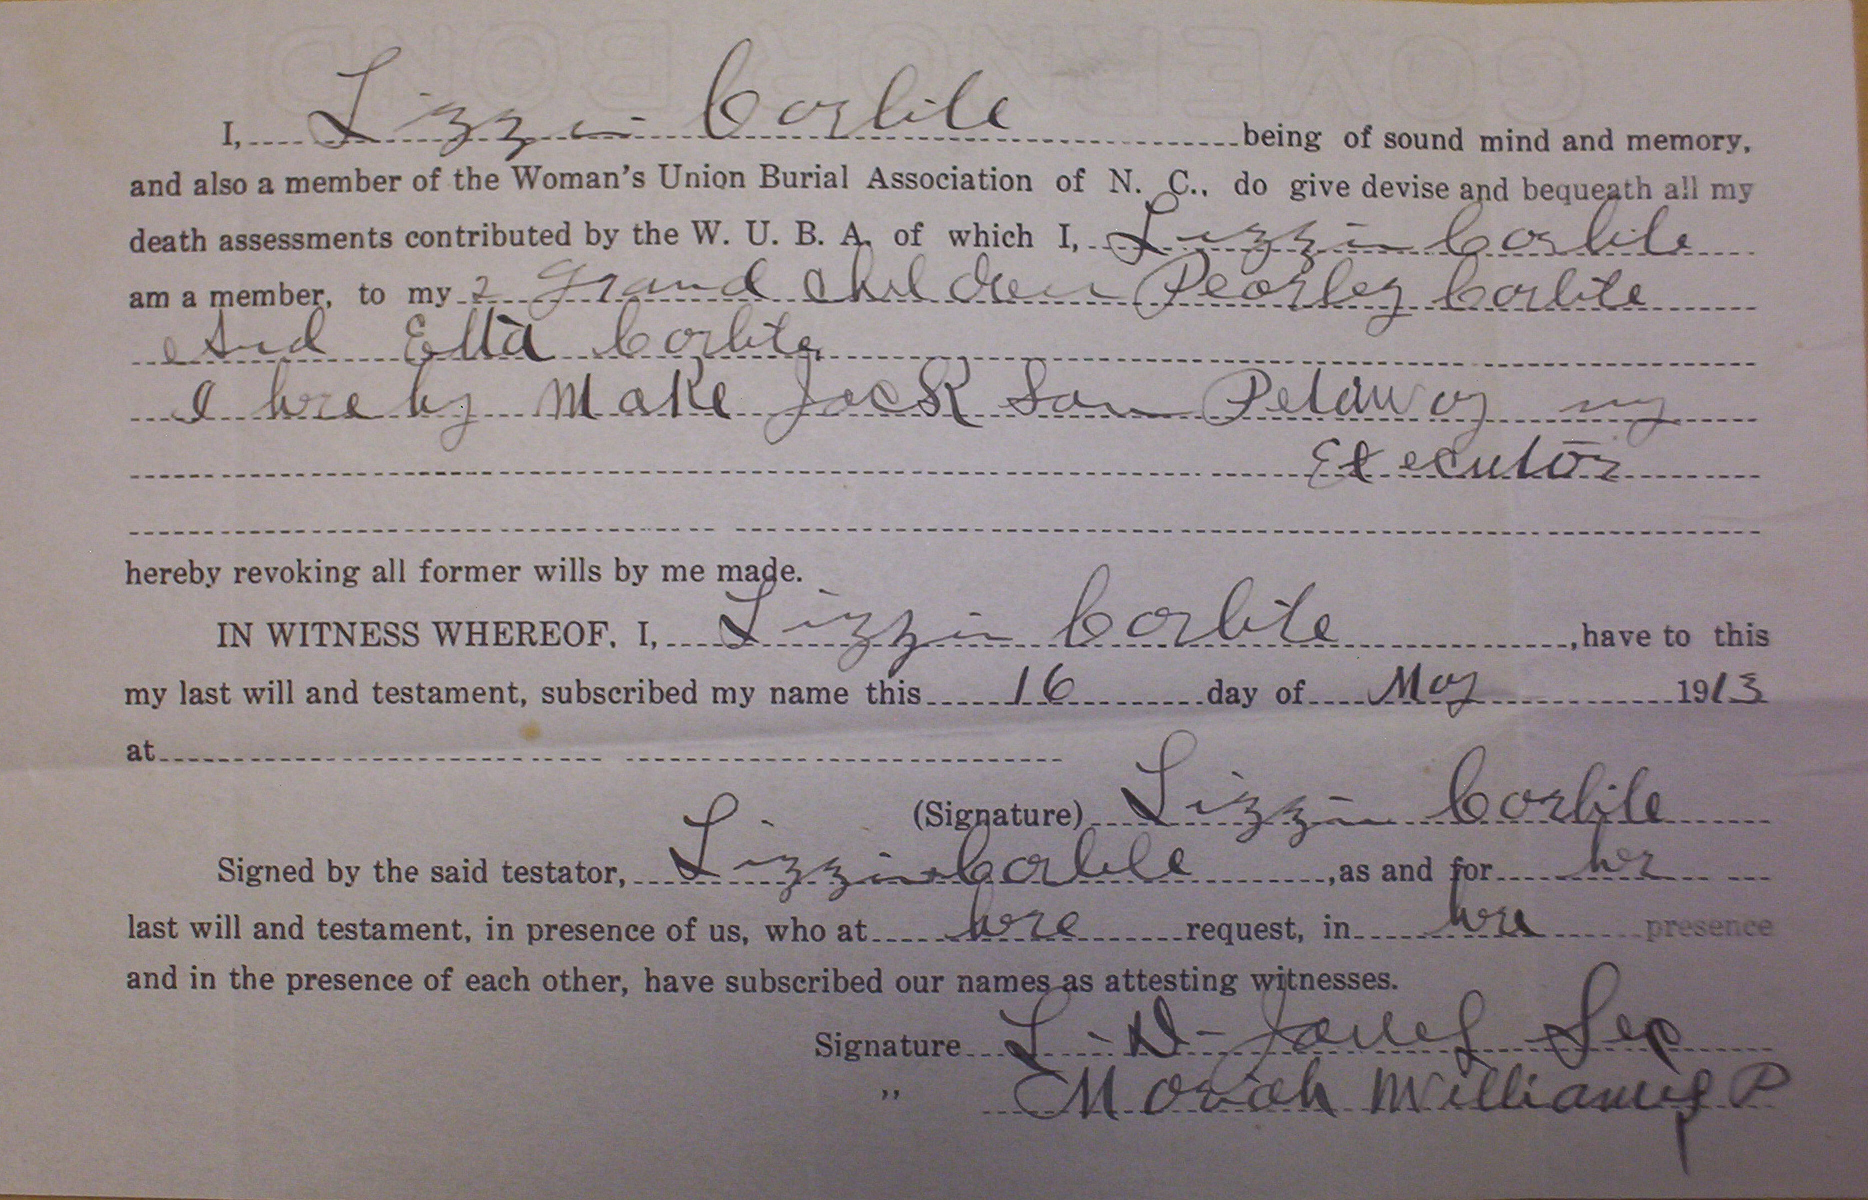 GOVERNO BOND
I, Lizzie Corbite being of sound mind and memory,
and also a member of the Woman's Union Burial Association of N. C., do give devise and bequeath all my
death assessments contributed by the W. U. B. A. of which I, Lizzie Corbite
am a member, to my 2 grand children Pearley Corbite
And Etta Corbite
I hreby Make Jack Son Petaway my
Executor
hereby revoking all former wills by me made.
IN WITNESS WHEREOF, I, Lizzie Corbite, have to this
my last will and testament, subscribed my name this 16 day of May 1913
at
(Signature) Lizzie Corbite
Signed by the said testator, Lizzie Corbite, as and for hr
last will and testament, in presence of us, who at hre request, in hre presence
and in the presence of each other, have subscribed our names as attesting witnesses.
Signature L-D-Jones
" Moriah Williams P